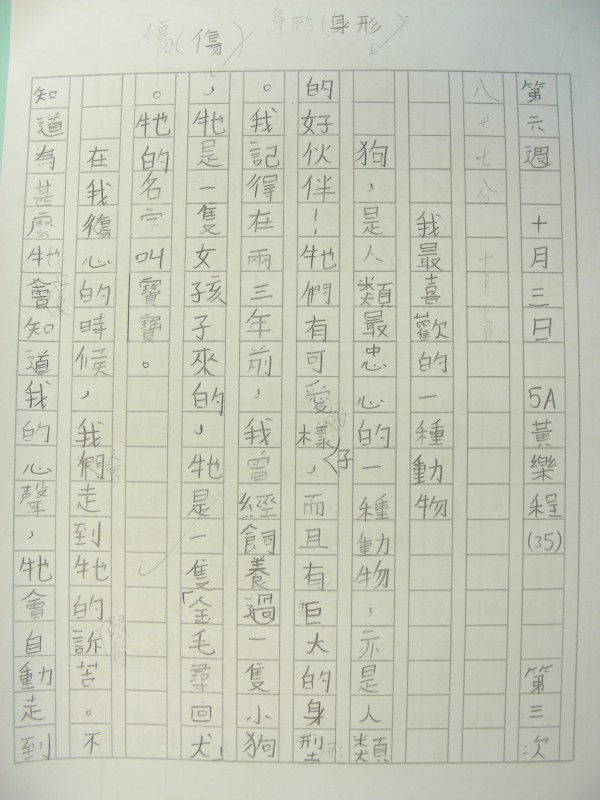 傷(傷)
身形(身形)
第六週 十月三日 5A 黃樂程(35) 第三次
八十七分
我最喜歡的一種動物
狗，是人類最忠心的一種動物，亦是人類
的好伙伴！牠們有可愛樣仔，而且有巨大的身型
。我記得在兩三年前，我曾經飼養過一隻小狗
，牠是一隻女孩子來的，牠是一隻「金毛尋回犬」
。牠的名字叫寶寶。
在我傷心的時候，我們走到牠的訴苦。不
知道為甚麼牠會知道我的心聲，牠會自動走到